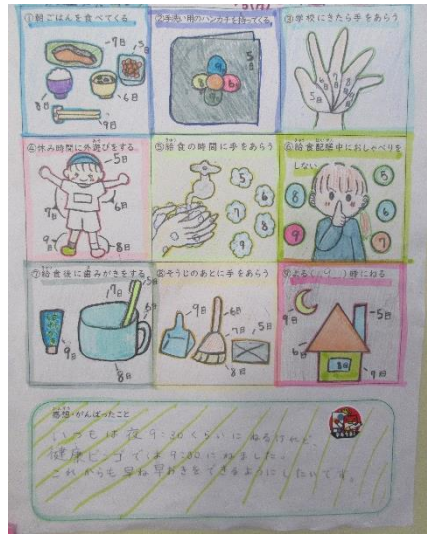 ①朝ごはんを食べてくる
7日
5日
8日
6日
9日
②手洗い用のハンカチを持ってくる
③学校にきたら手をあらう
5日
6日
7日
8日
9日
④休み時間に外遊びをする
5日
7日
6日
9日
8日
⑤給食の時間に手をあらう
5
6
7
8
9
⑥給食配膳中におしゃべりを
しない
5
8
6
9
7
⑦給食後に歯みがきをする
5日
7日
6日
9日
8日
⑧そうじのあとに手をあらう
9日
6日
7日
5日
8日
時にねる
9日
5日
6日
8日
7日
感想・がんばったこと
いつもは夜9:30くらいにねるけれど、
健康ビンゴでは9:00にねました。
これからも早ね早おきをできるようにしたいです。